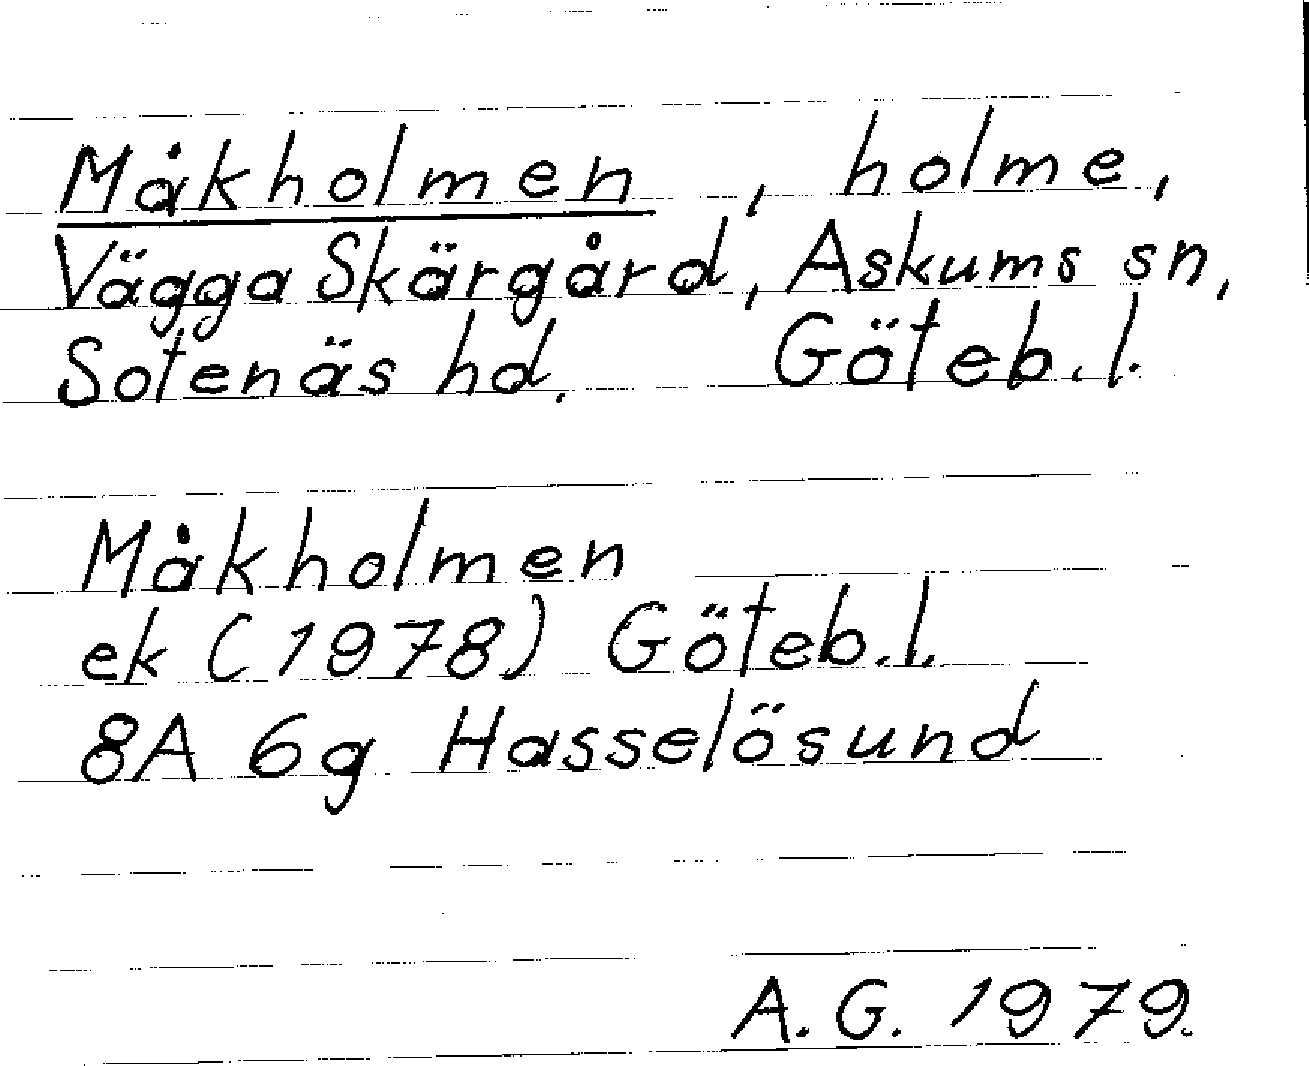 Måkholmen, holme,
Vägga Skärgård, Askums sn,
Sotenäs hd. Göteb.l.
Måkholmen
ek (1978) Göteb.l.
8A 6g Hasselösund
A.G. 1979.